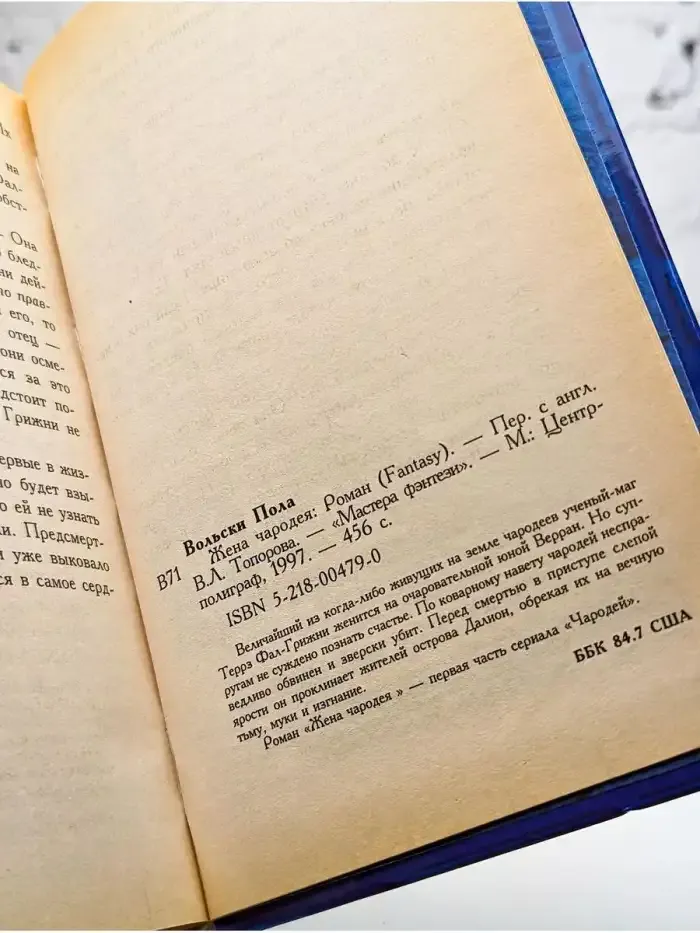 Их
на
Фал-
обст-
— Она
блед-
ни дей-
но прав-
его, то
отец —
они осме-
ся за это
дстоит по-
Грижни не
ервые в жиз-
но будет взы-
о ей не узнать
и. Предсмерт-
и уже выковало
ся в самое серд-
Вольски Пола
В71 Жена чародея: Роман (Fantasy). — Пер. с англ.
В.Л. Топорова. — «Мастера фэнтези». — М.: Центр-
полиграф, 1997. — 456 с.
ISBN 5-218-00479-0
Величайший из когда-либо живущих на земле чародеев ученый-маг
Террз Фал-Грижни женится на очаровательной юной Верран. Но суп-
ругам не суждено познать счастье. По коварному навету чародей неспра-
ведливо обвинен и зверски убит. Перед смертью в приступе слепой
ярости он проклинает жителей острова Далион, обрекая их на вечную
тьму, муки и изгнание.
Роман «Жена чародея » — первая часть сериала «Чародей».
ББК 84.7 США